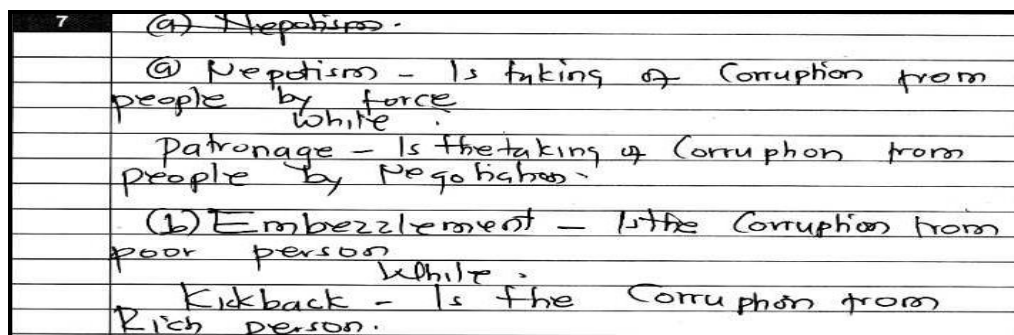 7 (a) Nepotism.
(a) Nepotism - Is taking of Corruption from
people by force
While .
Patronage - Is the taking of Corruption from
people by Negotiation.
(b) Embezzlement - Is the Corruption from
poor person
While .
Kickback - Is the Corruption from
Rich person.